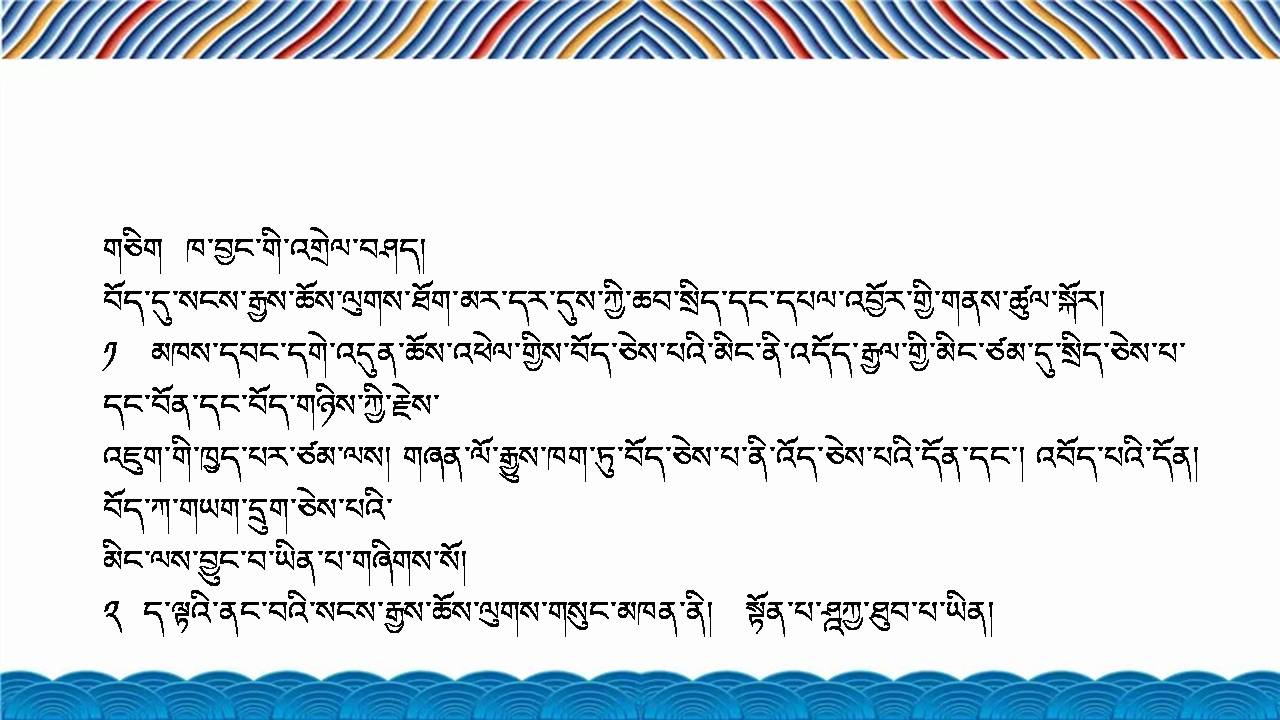 གཅིག  ཁ་བྱང་གི་འགྲེལ་བཤད།
བོད་དུ་སངས་རྒྱས་ཆོས་ལུགས་ཐོག་མར་དར་དུས་ཀྱི་ཆབ་སྲིད་དང་དཔལ་འབྱོར་གྱི་གནས་ཚུལ་སྐོར།
༡  མཁས་དབང་དགེ་འདུན་ཆོས་འཕེལ་གྱིས་བོད་ཅེས་པའི་མིང་ནི་འདོད་རྒྱལ་གྱི་མིང་ཙམ་དུ་སྲིད་ཅེས་པ་
དང་བོན་དང་བོད་གཉིས་ཀྱི་རྗེས་
འཇུག་གི་ཁྱད་པར་ཙམ་ལས། གཞན་ལོ་རྒྱུས་ཁག་ཏུ་བོད་ཅེས་པ་ནི་འོད་ཅེས་པའི་དོན་དང་། འབོད་པའི་དོན།
བོད་ཀ་གཡག་དྲུག་ཅེས་པའི་
མིང་ལས་བྱུང་བ་ཡིན་པ་གཞིགས་སོ།
༢  ད་ལྟའི་ནང་བའི་སངས་རྒྱས་ཆོས་ལུགས་གསུང་མཁན་ནི།  སྟོན་པ་ཤཱཀྱ་ཐུབ་པ་ཡིན།